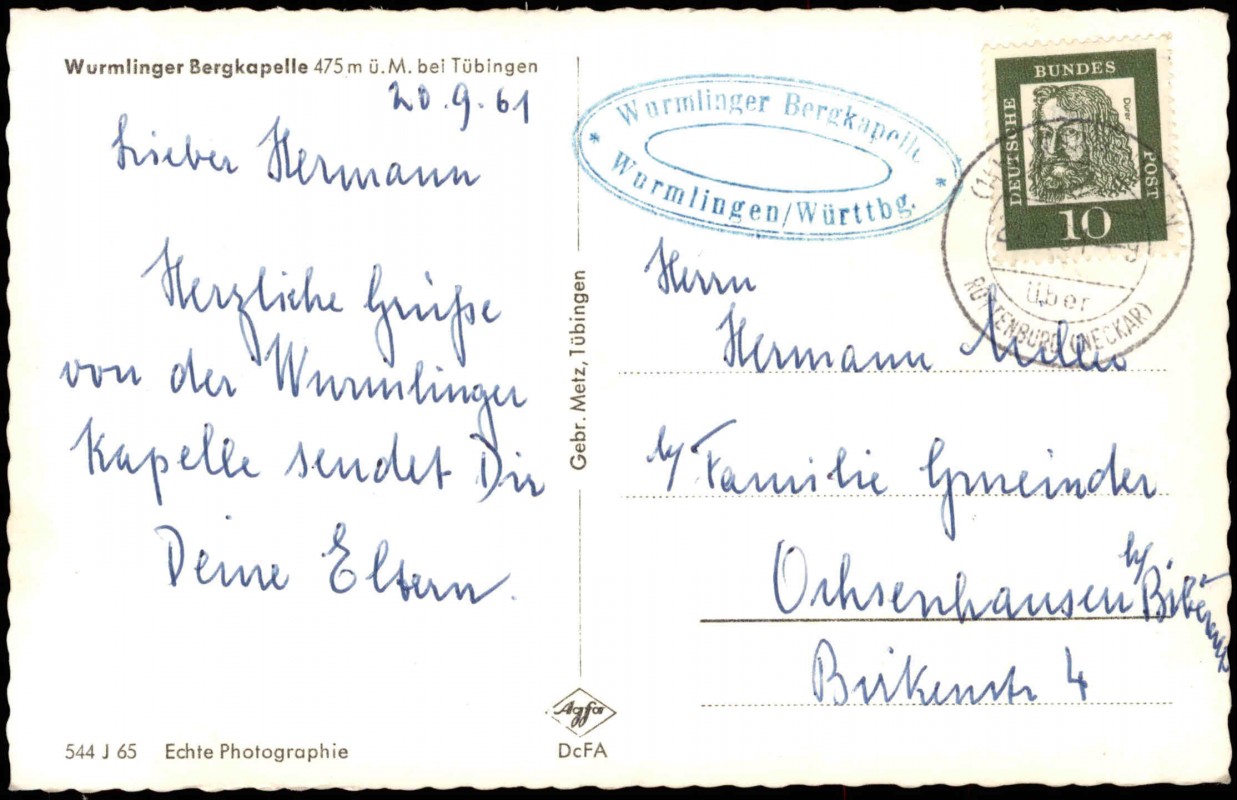 Wurmlinger Bergkapelle 475 m ü. M. bei Tübingen
20.9.61
Lieber Hermann
Herzliche Grüße
von der Wurmlinger
Kapelle sendet Dir
Deine Eltern.
544 J 65 Echte Photographie
Gebr. Metz, Tübingen
Agfa
DcFA
* Wurmlinger Bergkapelle *
Wurmlingen/Württbg.
DEUTSCHE
BUNDES
POST
Dürer
10
über
ROTTENBURG (NECKAR)
Herrn
Hermann
b/ Familie Gmeinder
Ochsenhausen b/
Birkenstr 4